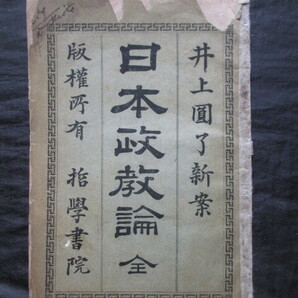 井上圓了新案
日本政教論 全
版權所有 哲學書院